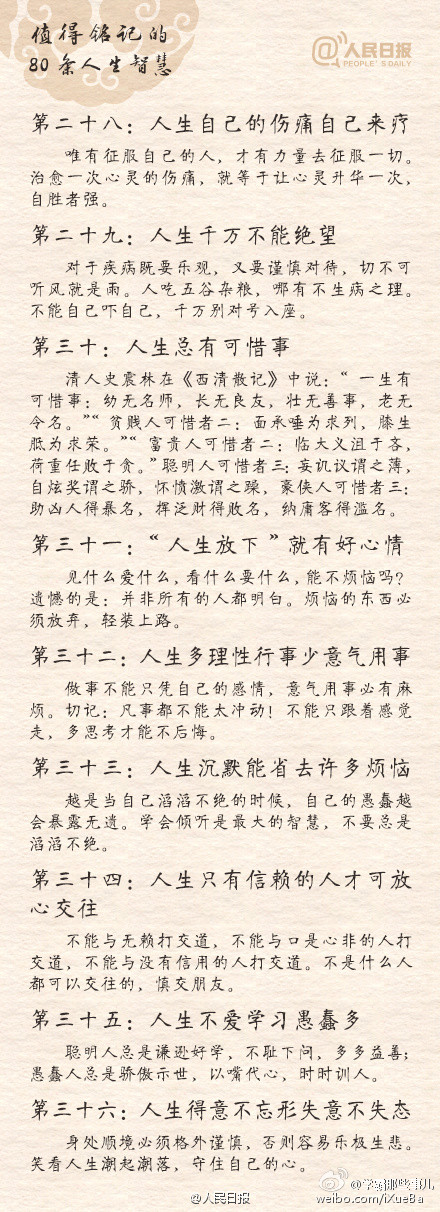 值得铭记的
80条人生智慧
@人民日报
PEOPLE'S DAILY
第二十八：人生自己的伤痛自己来疗
唯有征服自己的人，才有力量去征服一切。
治愈一次心灵的伤痛，就等于让心灵升华一次，
自胜者强。
第二十九：人生千万不能绝望
对于疾病既要乐观，又要谨慎对待，切不可
听风就是雨。人吃五谷杂粮，哪有不生病之理。
不能自己吓自己，千万别对号入座。
第三十：人生总有可惜事
清人史震林在《西清散记》中说：“一生有
可惜事：幼无名师，长无良友，壮无善事，老无
令名。”“贫贱人可惜者二：面承唾为求列，膝生
胝为求荣。”“富贵人可惜者二：临大义沮于吝，
荷重任败于贪。”聪明人可惜者三：妄讥议谓之薄，
自炫奖谓之骄，怀愤激谓之躁，豪侠人可惜者三：
助凶人得暴名，挥泛财得败名，纳庸客得滥名。
第三十一：“人生放下”就有好心情
见什么爱什么，看什么要什么，能不烦恼吗？
遗憾的是：并非所有的人都明白。烦恼的东西必
须放弃，轻装上路。
第三十二：人生多理性行事少意气用事
做事不能只凭自己的感情，意气用事必有麻
烦。切记：凡事都不能太冲动！不能只跟着感觉
走，多思考才能不后悔。
第三十三：人生沉默能省去许多烦恼
越是当自己滔滔不绝的时候，自己的愚蠢越
会暴露无遗。学会倾听是最大的智慧，不要总是
滔滔不绝。
第三十四：人生只有信赖的人才可放
心交往
不能与无赖打交道，不能与口是心非的人打
交道，不能与没有信用的人打交道。不是什么人
都可以交往的，慎交朋友。
第三十五：人生不爱学习愚蠢多
聪明人总是谦逊好学，不耻下问，多多益善；
愚蠢人总是骄傲示世，以嘴代心，时时训人。
第三十六：人生得意不忘形失意不失态
身处顺境必须格外谨慎，否则容易乐极生悲。
笑看人生潮起潮落，守住自己的心。
@人民日报
@学霸那些事儿
weibo.com/iXueBa